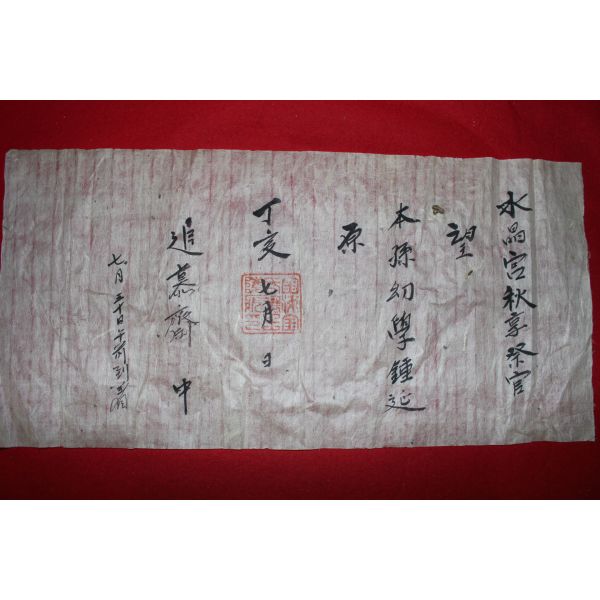 水晶宮秋享祭官
望
本孫幼學鍾延
原
丁亥七月 日
追慕齋 中
七月 三十日午前到